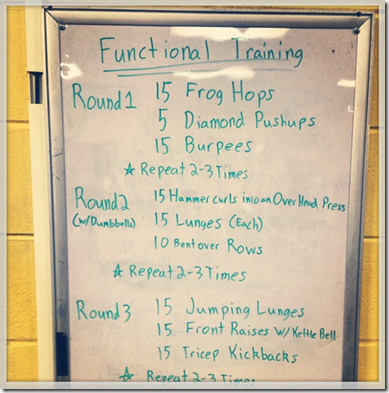 Functional Training
Round 1 15 Frog Hops
5 Diamond Pushups
15 Burpees
☆ Repeat 2-3 Times
Round 2 15 Hammer curls into an Over Head Press
(w/Dumbbells) 15 Lunges (Each)
10 Bent over Rows
☆ Repeat 2-3 Times
Round 3 15 Jumping Lunges
15 Front Raises w/ Kettle Bell
15 Tricep Kickbacks
☆ Repeat 2-3 Times